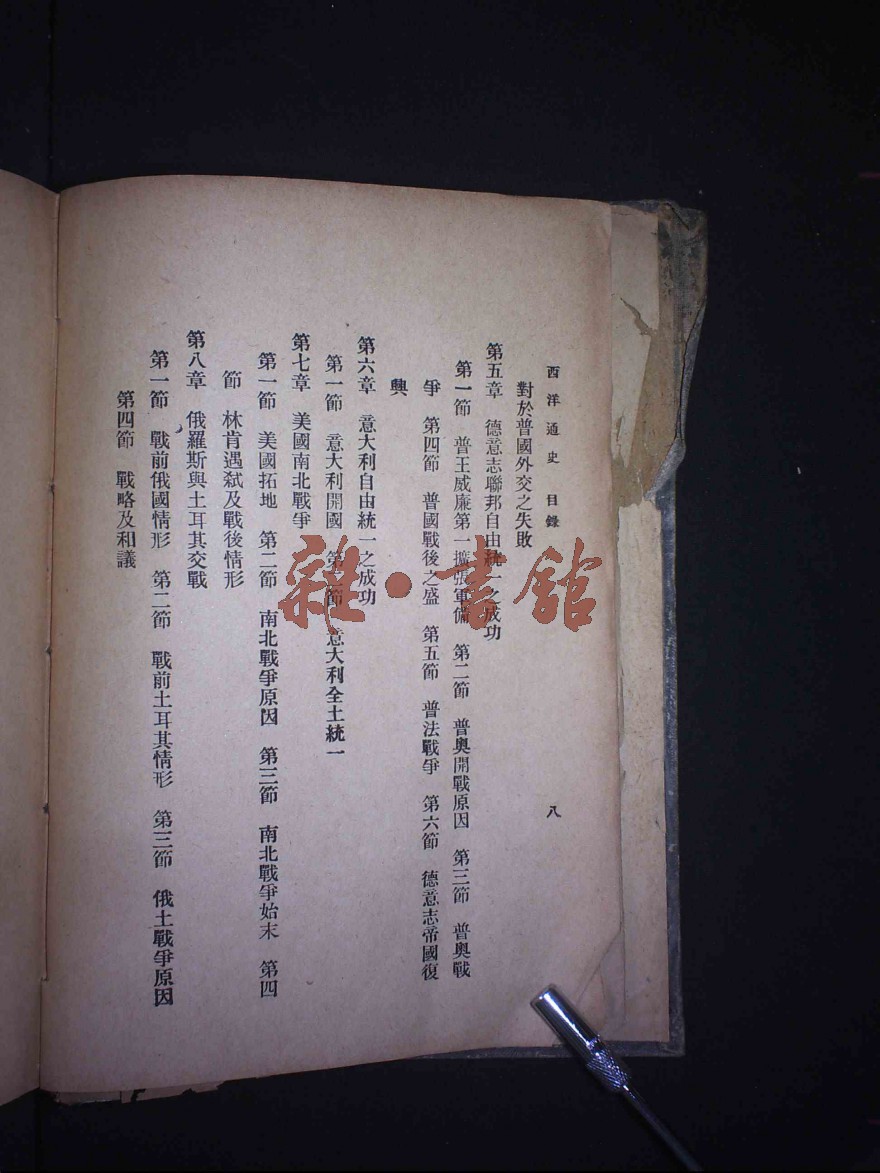 西洋通史 目錄 八
對於普國外交之失敗
第五章 德意志聯邦自由統一之成功
第一節 普王威廉第一擴張軍備 第二節 普奧開戰原因 第三節 普奧戰
爭 第四節 普國戰後之盛 第五節 普法戰爭 第六節 德意志帝國復
興
第六章 意大利自由統一之成功
第一節 意大利開國 第二節 意大利全土統一
第七章 美國南北戰爭
第一節 美國拓地 第二節 南北戰爭原因 第三節 南北戰爭始末 第四
節 林肯遇弒及戰後情形
第八章 俄羅斯與土耳其交戰
第一節 戰前俄國情形 第二節 戰前土耳其情形 第三節 俄土戰爭原因
第四節 戰略及和議
雜·書館